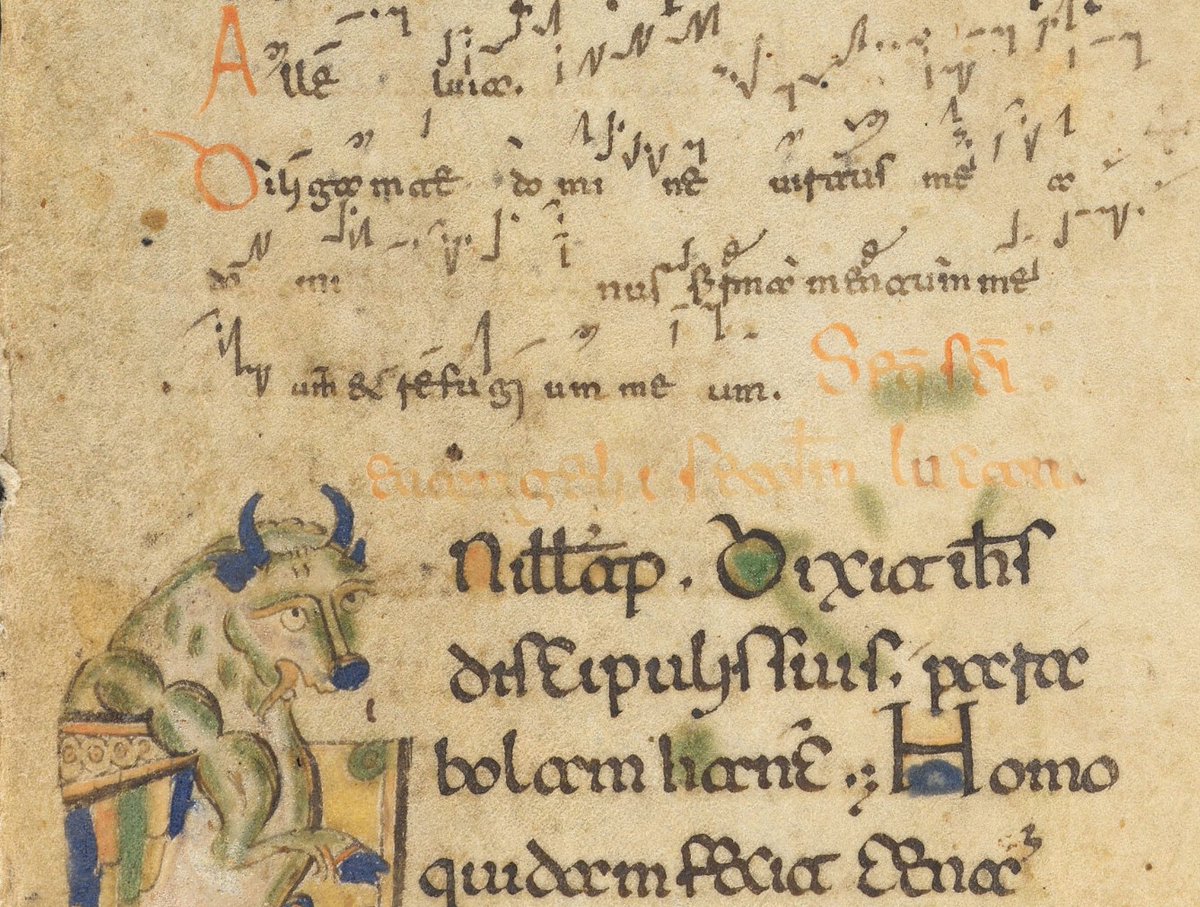 Alle luia.
Diligam te do mi ne uirtus me a
do mi nus firmamentum me
um & refugi um me um. Seq̄ sc̄i
euangelii secdm lucam.
N ill t̄ap. Dixit ih̄s
discipulis suis. para
bolam hanc̄. Homo
quidam fecit cena